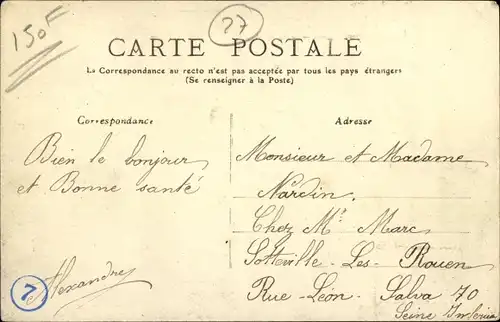 150F
77
CARTE POSTALE
La Correspondance au recto n'est pas acceptée par tous les pays étrangers
(Se renseigner à la Poste)
Correspondance
Bien le bonjour
et Bonne santé
Alexandre
7
Adresse
Monsieur et Madame
Nardin
Chez Mr Marc
Sotteville - Les - Rouen
Rue - Léon - Salva 70
Seine Inferieu